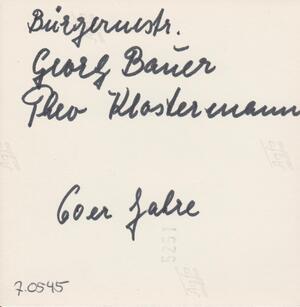 Bürgermstr.
Georg Bauer
Theo Klostermann
60er Jahre
5251
7.0545